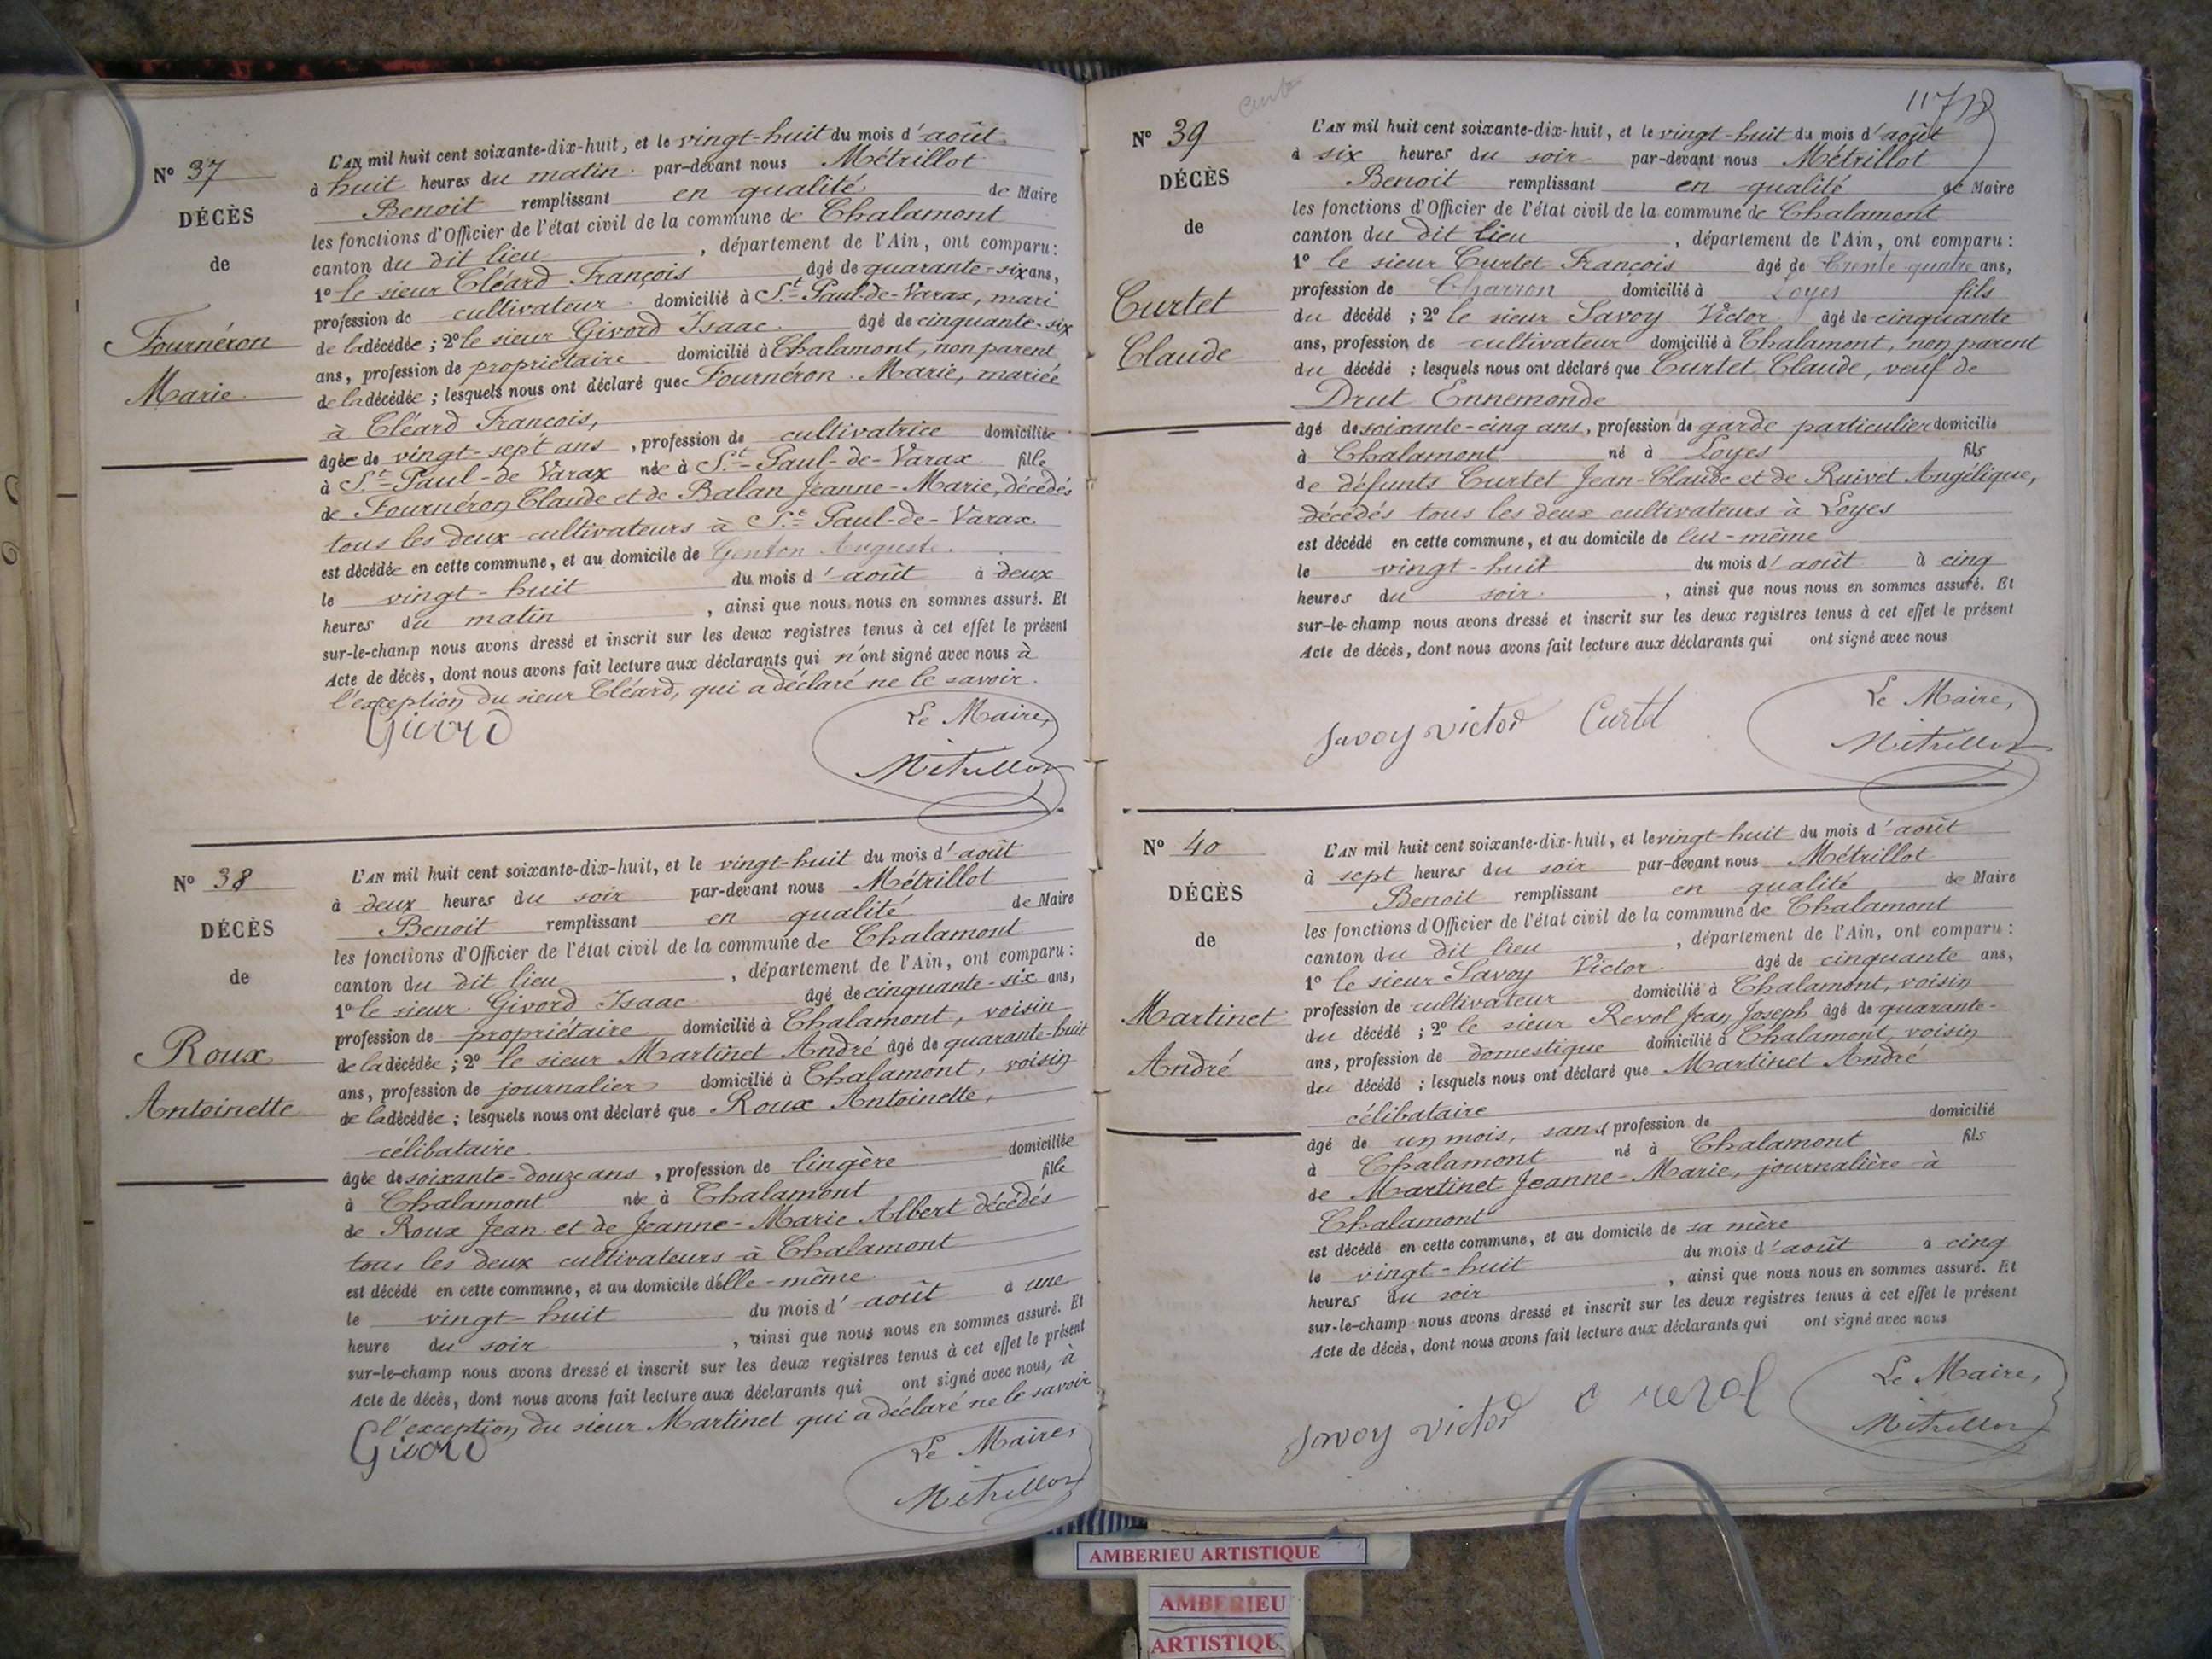 N° 37
DÉCÈS
de
Fournéron
Marie
L'AN mil huit cent soixante-dix-huit, et le vingt-huit du mois d'août
à huit heures du matin par-devant nous Métrillot
Benoit remplissant en qualité de Maire
les fonctions d'Officier de l'état civil de la commune de Chalamont
canton du dit lieu, département de l'Ain, ont comparu :
1° le sieur Cléard François âgé de quarante-six ans,
profession de cultivateur domicilié à St-Paul-de-Varax, mari
de la décédée ; 2° le sieur Givord Isaac âgé de cinquante-six
ans, profession de propriétaire domicilié à Chalamont, non parent
de la décédée ; lesquels nous ont déclaré que Fournéron Marie, mariée
à Cléard François,
âgée de vingt-sept ans, profession de cultivatrice domiciliée
à St-Paul-de Varax née à St-Paul-de-Varax fille
de Fournéron Claude et de Balan Jeanne-Marie, décédés
tous les deux cultivateurs à St-Paul-de-Varax.
est décédée en cette commune, et au domicile de Genton Auguste.
le vingt-huit du mois d'août à deux
heures du matin, ainsi que nous nous en sommes assuré. Et
sur-le-champ nous avons dressé et inscrit sur les deux registres tenus à cet effet le présent
Acte de décès, dont nous avons fait lecture aux déclarants qui n'ont signé avec nous à
l'exception du sieur Cléard, qui a déclaré ne le savoir.
Givord
Le Maire,
Métrillot
N° 38
DÉCÈS
de
Roux
Antoinette
L'AN mil huit cent soixante-dix-huit, et le vingt-huit du mois d'août
à deux heures du soir par-devant nous Métrillot
Benoit remplissant en qualité de Maire
les fonctions d'Officier de l'état civil de la commune de Chalamont
canton du dit lieu, département de l'Ain, ont comparu :
1° le sieur Givord Isaac âgé de cinquante-six ans,
profession de propriétaire domicilié à Chalamont, voisin
de la décédée ; 2° le sieur Martinet André âgé de quarante-huit
ans, profession de journalier domicilié à Chalamont, voisin
de la décédée ; lesquels nous ont déclaré que Roux Antoinette,
célibataire
âgée de soixante-douze ans, profession de lingère domiciliée
à Chalamont née à Chalamont fille
de Roux Jean et de Jeanne-Marie Albert décédés
tous les deux cultivateurs à Chalamont
est décédé en cette commune, et au domicile d'elle-même
le vingt-huit du mois d'août à une
heure du soir, ainsi que nous nous en sommes assuré. Et
sur-le-champ nous avons dressé et inscrit sur les deux registres tenus à cet effet le présent
Acte de décès, dont nous avons fait lecture aux déclarants qui ont signé avec nous, à
l'exception du sieur Martinet qui a déclaré ne le savoir
Givord
Le Maire,
Métrillot
117
N° 39
DÉCÈS
de
Curtet
Claude
L'AN mil huit cent soixante-dix-huit, et le vingt-huit du mois d'août
à six heures du soir par-devant nous Métrillot
Benoit remplissant en qualité de Maire
les fonctions d'Officier de l'état civil de la commune de Chalamont
canton du dit lieu, département de l'Ain, ont comparu :
1° le sieur Curtet François âgé de trente quatre ans,
profession de Charron domicilié à Loyes fils
du décédé ; 2° le sieur Savoy Victor âgé de cinquante
ans, profession de cultivateur domicilié à Chalamont, non parent
du décédé ; lesquels nous ont déclaré que Curtet Claude, veuf de
Drut Ennemonde
âgé de soixante-cinq ans, profession de garde particulier domicilié
à Chalamont né à Loyes fils
de défunts Curtet Jean-Claude et de Ruivet Angélique,
décédés tous les deux cultivateurs à Loyes
est décédé en cette commune, et au domicile de lui-même
le vingt-huit du mois d'août à cinq
heures du soir, ainsi que nous nous en sommes assuré. Et
sur-le-champ nous avons dressé et inscrit sur les deux registres tenus à cet effet le présent
Acte de décès, dont nous avons fait lecture aux déclarants qui ont signé avec nous
Savoy victor Curtet
Le Maire,
Métrillot
N° 40
DÉCÈS
de
Martinet
André
L'AN mil huit cent soixante-dix-huit, et le vingt-huit du mois d'août
à sept heures du soir par-devant nous Métrillot
Benoit remplissant en qualité de Maire
les fonctions d'Officier de l'état civil de la commune de Chalamont
canton du dit lieu, département de l'Ain, ont comparu :
1° le sieur Savoy Victor âgé de cinquante ans,
profession de cultivateur domicilié à Chalamont, voisin
du décédé ; 2° le sieur Revol Jean Joseph âgé de quarante-
ans, profession de domestique domicilié à Chalamont, voisin
du décédé ; lesquels nous ont déclaré que Martinet André
célibataire
âgé de un mois, sans profession de domicilié
à Chalamont né à Chalamont fils
de Martinet Jeanne-Marie, journalière à
Chalamont
est décédé en cette commune, et au domicile de sa mère
le vingt-huit du mois d'août à cinq
heures du soir, ainsi que nous nous en sommes assuré. Et
sur-le-champ nous avons dressé et inscrit sur les deux registres tenus à cet effet le présent
Acte de décès, dont nous avons fait lecture aux déclarants qui ont signé avec nous
Savoy victor revol
Le Maire,
Métrillot
AMBERIEU ARTISTIQUE
AMBERIEU
ARTISTIQUE